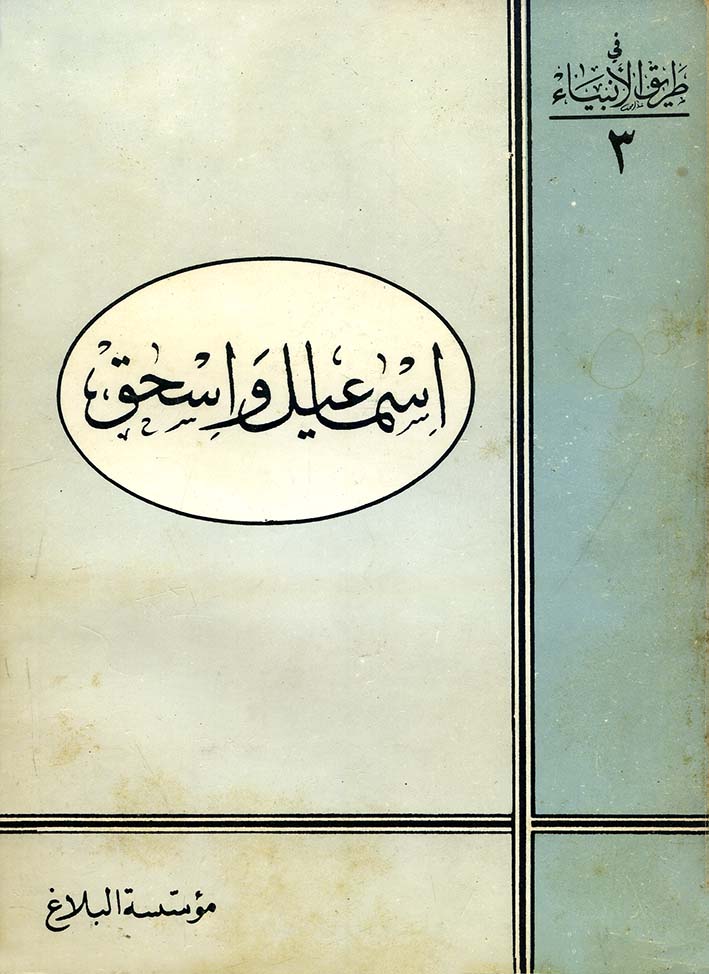 في
طريق الأنبياء
٣
اسماعيل وَاِسْحق
مؤسّسة البلاغ